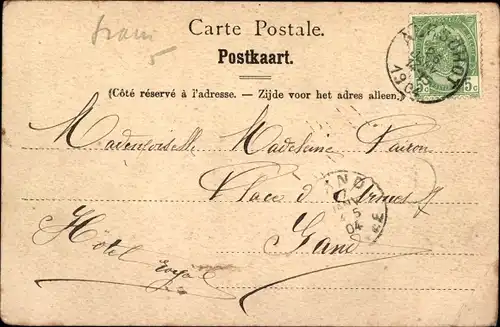 tram
5
Carte Postale.
Postkaart.
(Côté réservé à l'adresse. — Zijde voor het adres alleen.)
5c 5c
Mademoiselle Madeleine
Place d'Armes
Gand
Hôtel Royal
GAND
5
04